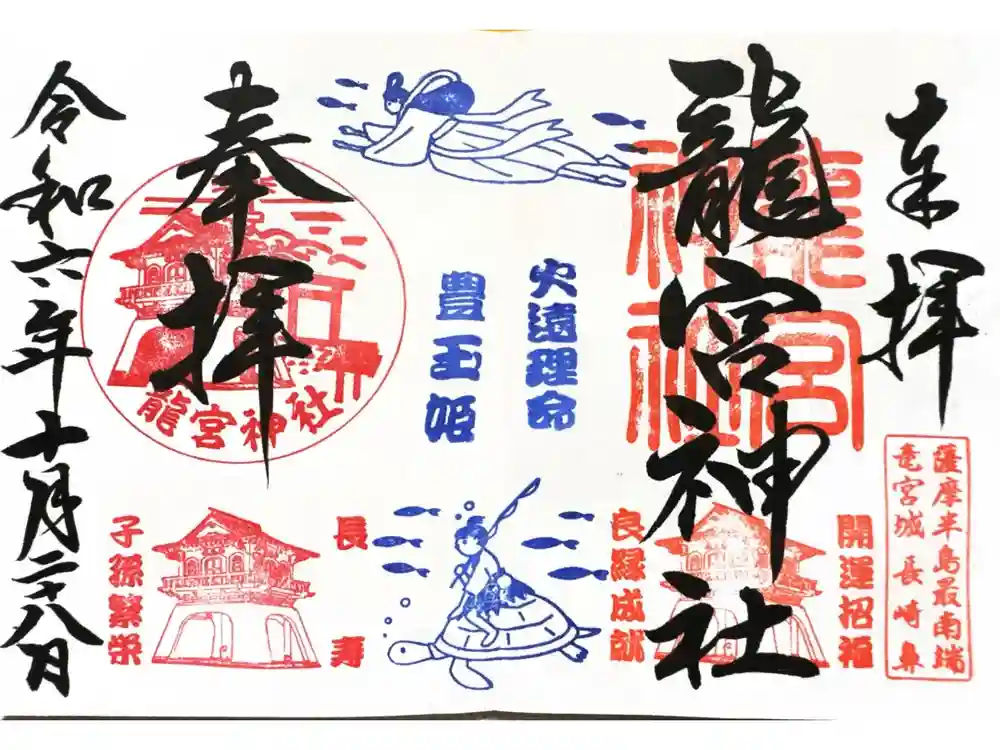 奉拝
薩摩半島最南端
竜宮城 長崎鼻
龍宮神社
龍宮
神社
開運招福
良縁成就
火遠理命
豊玉姫
奉拝
龍宮神社
長寿
子孫繁栄
令和六年十月二十八日